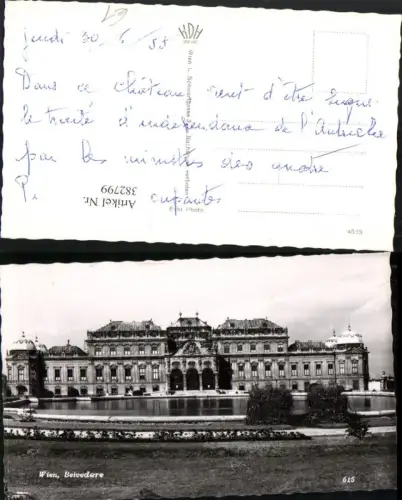 jeudi 30/6/55
Dans ce château vient d'être signé
le traité d'indépendance de l'Autriche
par les ministres des quatre
HDH
Artikel Nr.
382799
Echt Photo
Wien, Belvedere
615